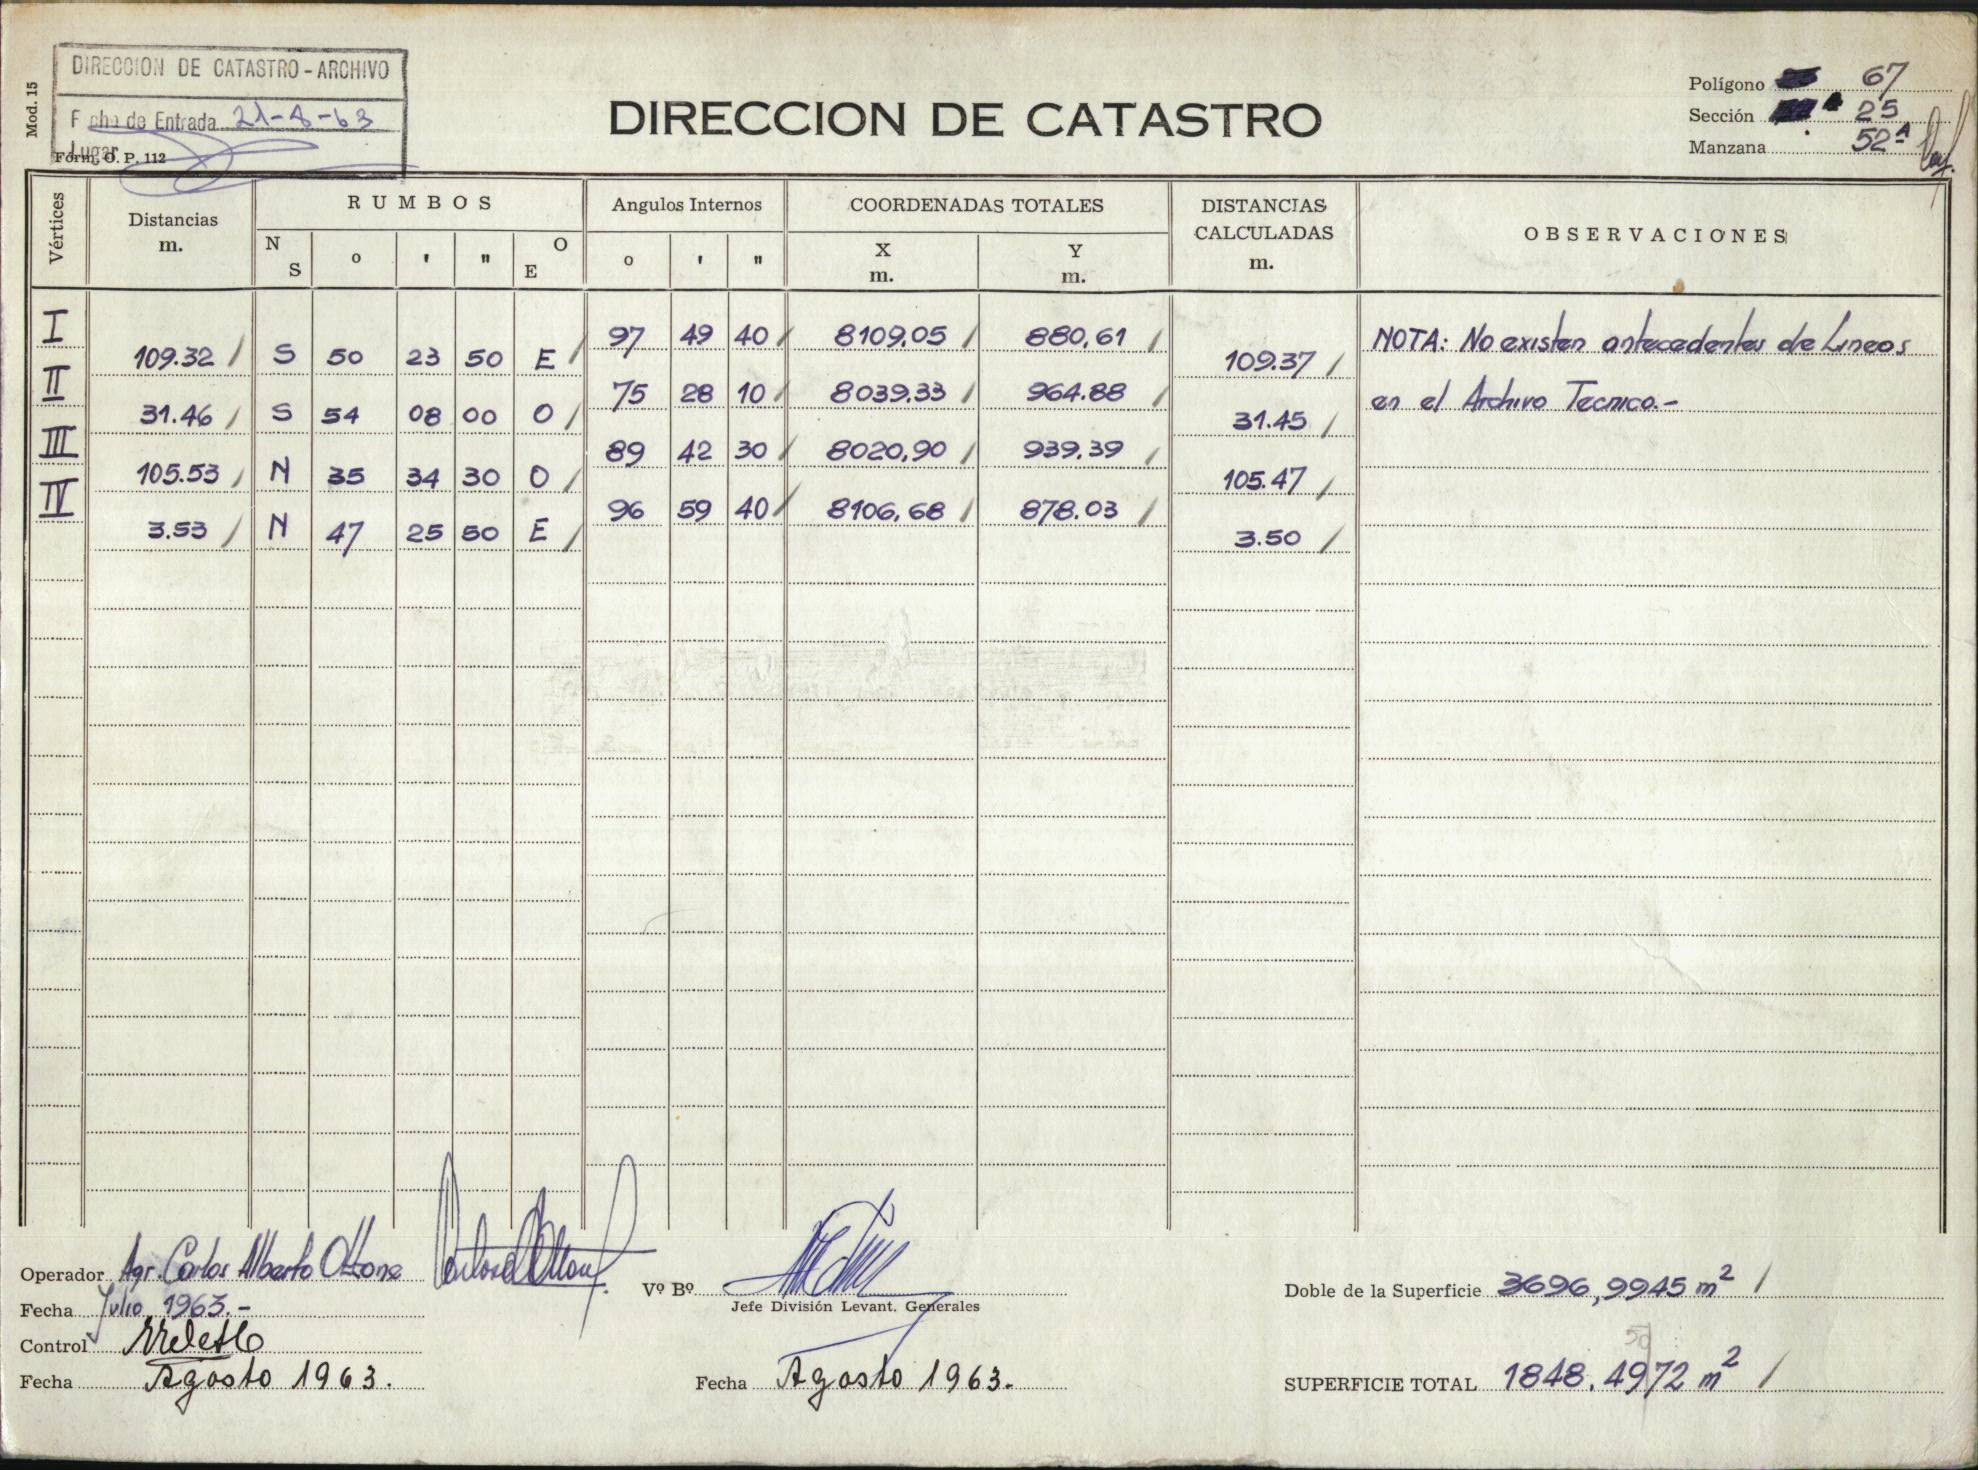 DIRECCION DE CATASTRO - ARCHIVO
Fecha de Entrada 21-8-63
Lugar
Mod. 15
Form. O. P. 112
DIRECCION DE CATASTRO
Polígono 67
Sección 25
Manzana 52ᴬ
Vértices
Distancias m.
RUMBOS
N S ° ' " O E
Angulos Internos
° ' "
COORDENADAS TOTALES
X m. Y m.
DISTANCIAS CALCULADAS m.
OBSERVACIONES
I 97 49 40 8109,05 880,61 NOTA: No existen antecedentes de Lineas
109.32 S 50 23 50 E 109.37
II 75 28 10 8039.33 964.88 en el Archivo Tecnico.-
31.46 S 54 08 00 O 31.45
III 89 42 30 8020,90 939,39
105.53 N 35 34 30 O 105.47
IV 96 59 40 8106,68 878.03
3.53 N 47 25 50 E 3.50
Operador Agr. Carlos Alberto Ottone
Fecha Julio 1963.-
Control
Fecha Agosto 1963.
Vº Bº
Jefe División Levant. Generales
Fecha Agosto 1963.
Doble de la Superficie 3696,9945 m²
50
SUPERFICIE TOTAL 1848.4972 m²